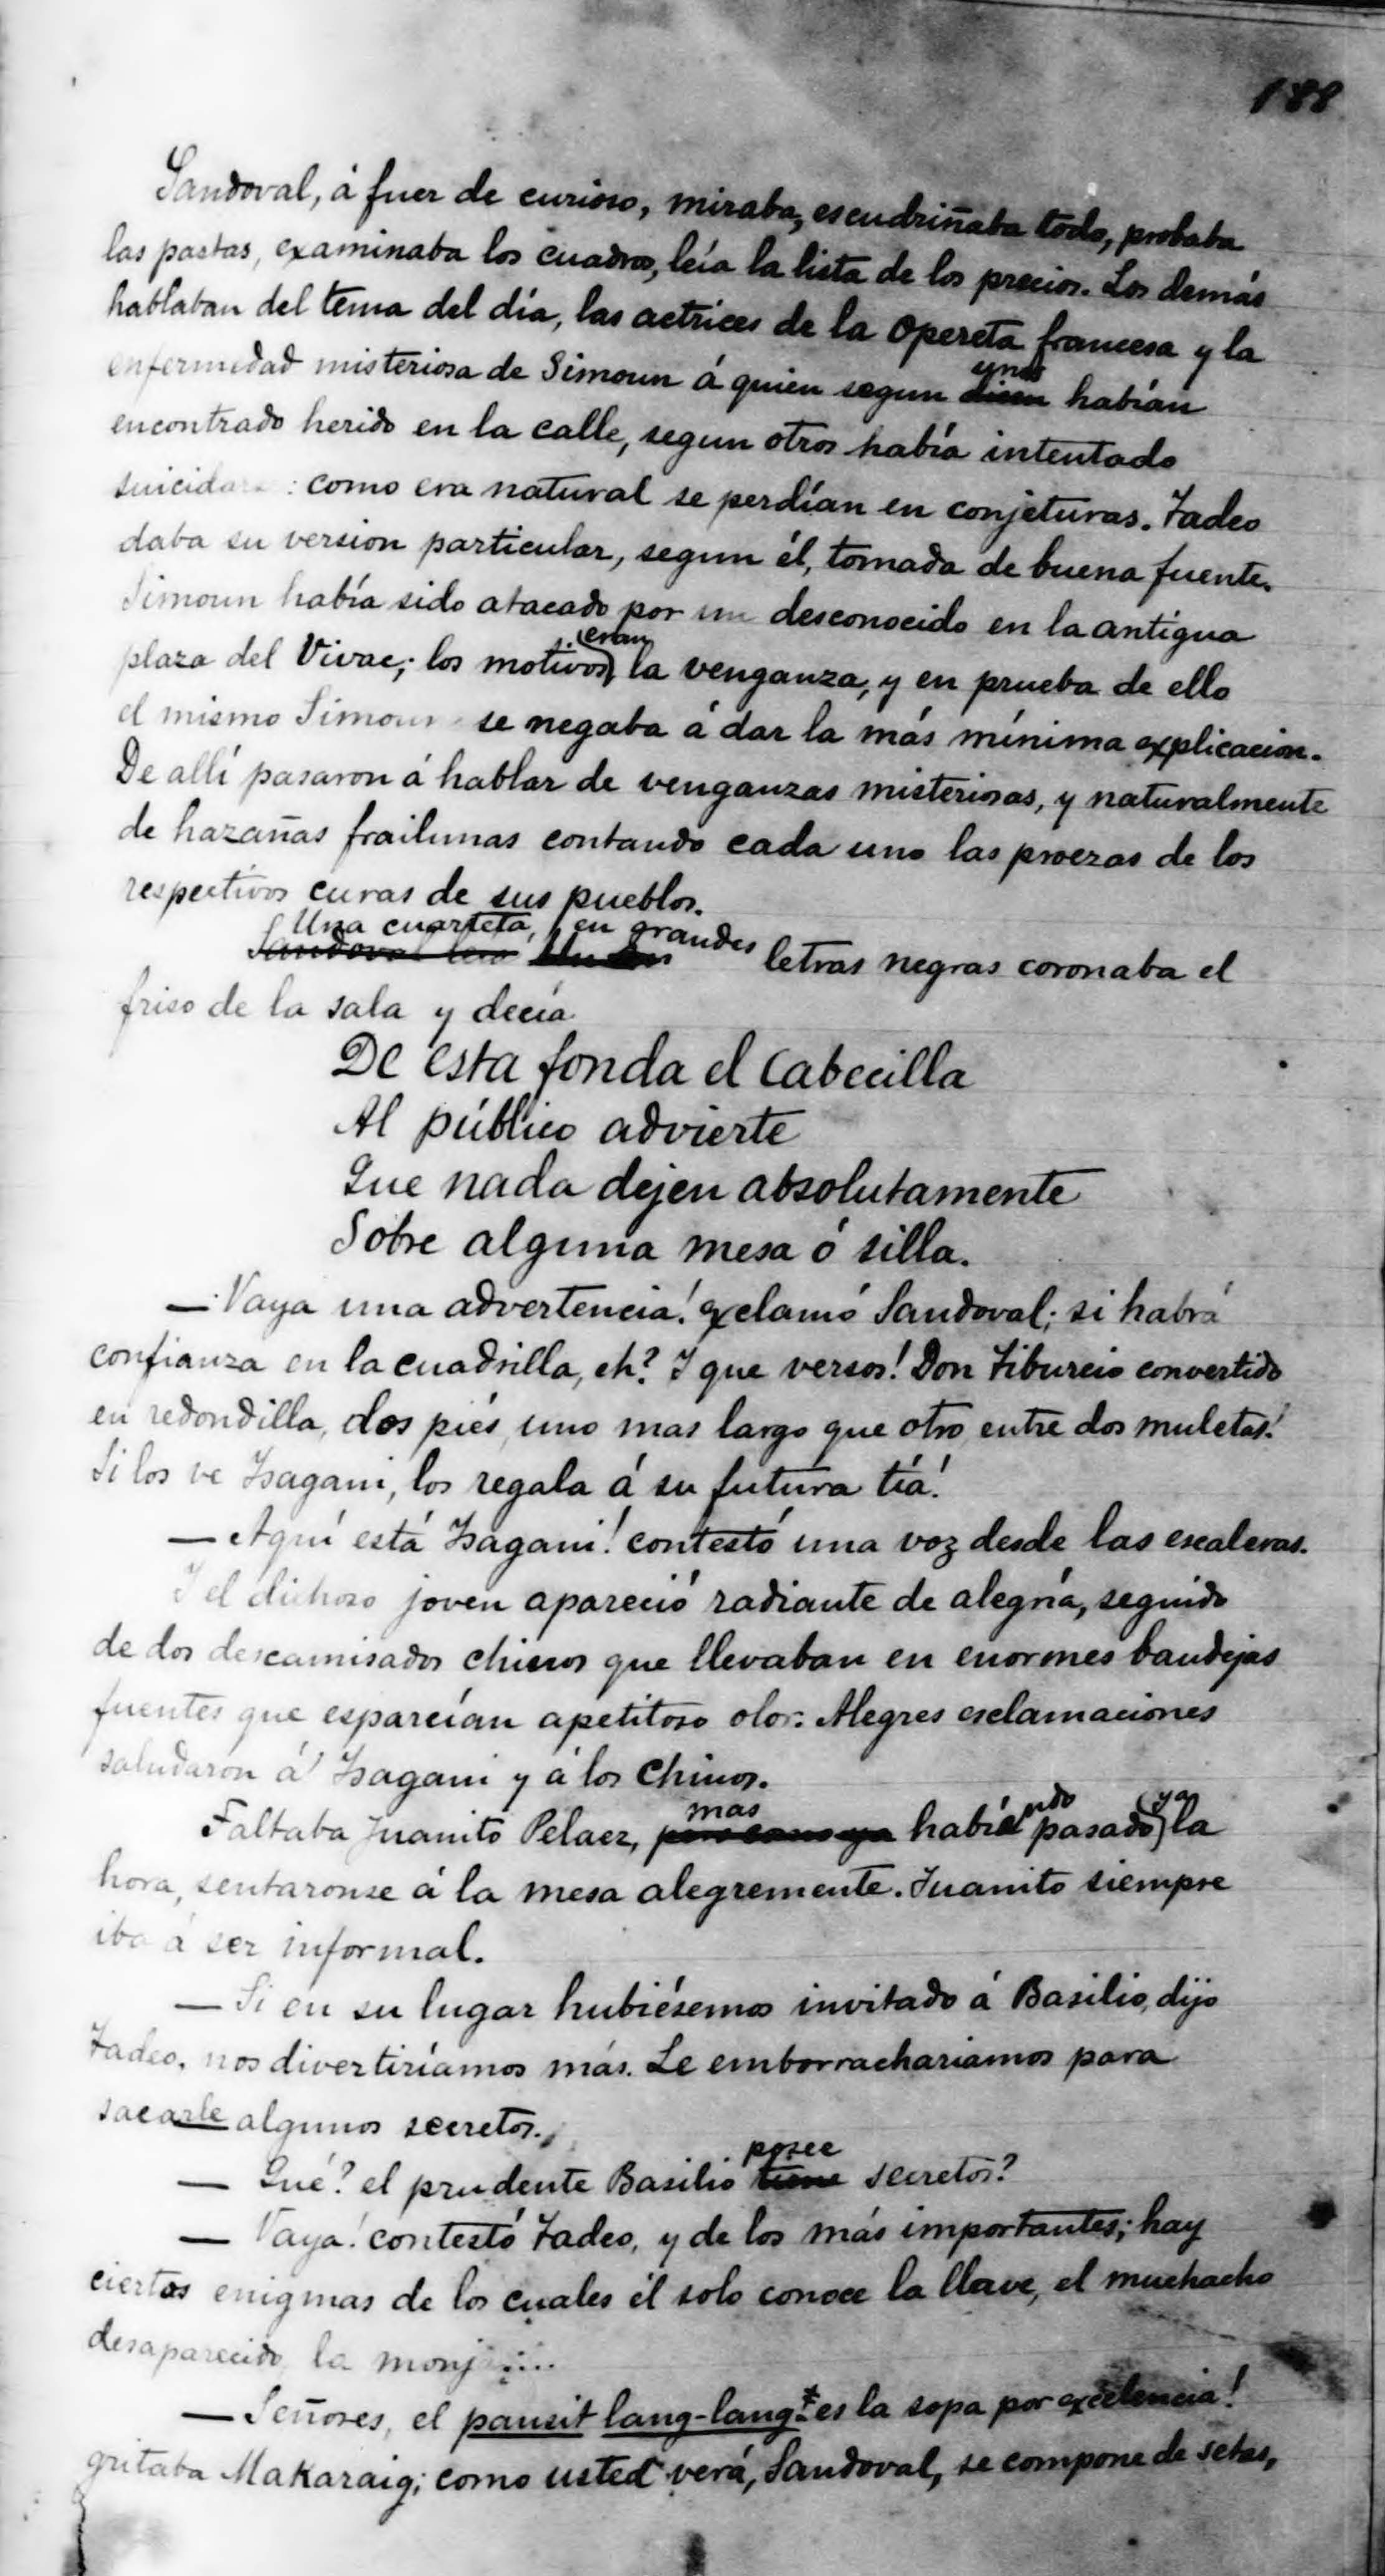 188
Sandoval, á fuer de curioso, miraba, escudriñaba todo, probaba
las pastas, examinaba los cuadros, leía la lista de los precios. Los demás
hablaban del tema del día, las actrices de la opereta francesa y la
enfermedad misteriosa de Simoun á quien segun unos habían
encontrado herido en la calle, segun otros había intentado
suicidar : como era natural se perdían en conjeturas. Tadeo
daba su version particular, segun él, tomada de buena fuente.
Simoun había sido atacado por un desconocido en la antigua
plaza del Vivac; los motivos eran la venganza, y en prueba de ello
el mismo Simoun se negaba á dar la más mínima explicacion.
De allí pasaron á hablar de venganzas misteriosas, y naturalmente
de hazañas frailunas contando cada uno las proezas de los
respectivos curas de sus pueblos.
Sandoval leia Una cuarteta, en grandes letras negras coronaba el
friso de la sala y decía
De esta fonda el cabecilla
Al público advierte
Que nada dejen absolutamente
Sobre alguna mesa ó silla.
— Vaya una advertencia! exclamó Sandoval; si habrá
confianza en la cuadrilla, eh? Y que versos! Don Tiburcio convertido
en redondilla, dos piés, uno mas largo que otro entre dos muletas!
Si los ve Isagani, los regala á su futura tía!
— Aquí está Isagani! contestó una voz desde las escaleras.
Y el dichoso joven apareció radiante de alegría, seguido
de dos descamisados chinos que llevaban en enormes bandejas
fuentes que esparcían apetitoso olor. Alegres esclamaciones
saludaron á Isagani y á los chinos.
Faltaba Juanito Pelaez, mas habiendo pasado ya la
hora, sentaronse á la mesa alegremente. Juanito siempre
iba á ser informal.
— Si en su lugar hubiésemos invitado á Basilio, dijo
Tadeo, nos divertiríamos más. Le emborrachariamos para
sacarle algunos secretos.
— Qué? el prudente Basilio tiene posee secretos?
— Vaya! contestó Tadeo, y de los más importantes; hay
ciertos enigmas de los cuales él solo conoce la llave, el muchacho
desaparecido, la monj ....
— Señores, el pansit lang-lang * es la sopa por excelencia!
gritaba Makaraig; como usted verá, Sandoval, se compone de setas,